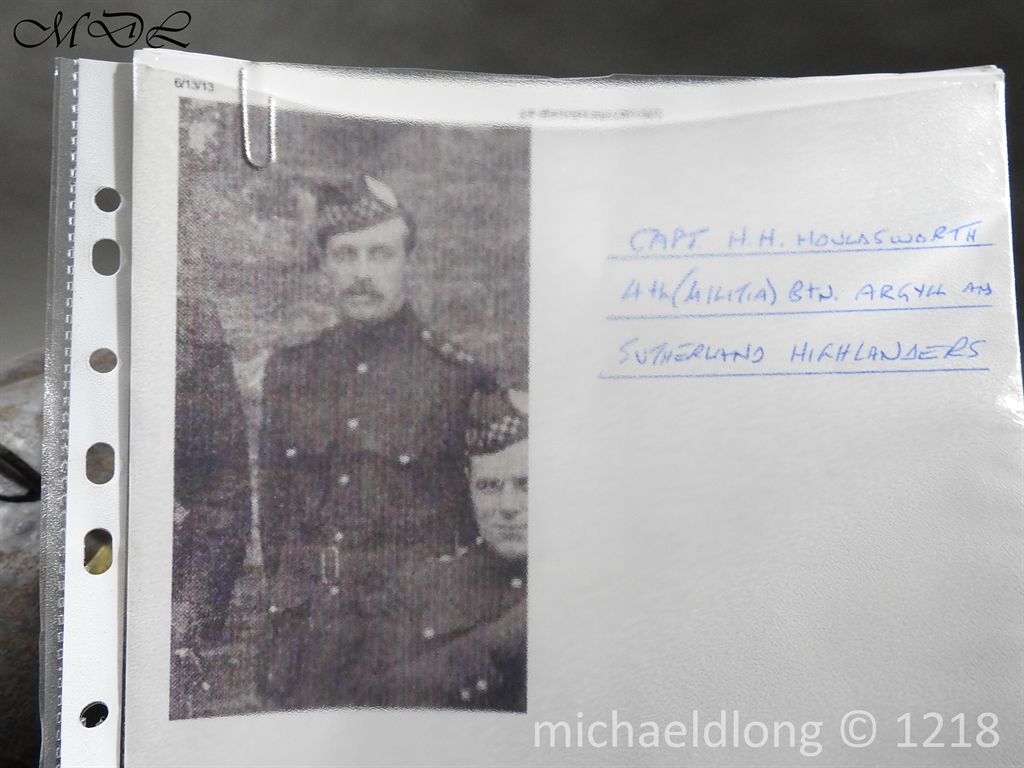 MDL
6/13/13
CAPT H.H. HOULDSWORTH
4th (MILITIA) BTN. ARGYLL AND
SUTHERLAND HIGHLANDERS
michaeldlong © 1218